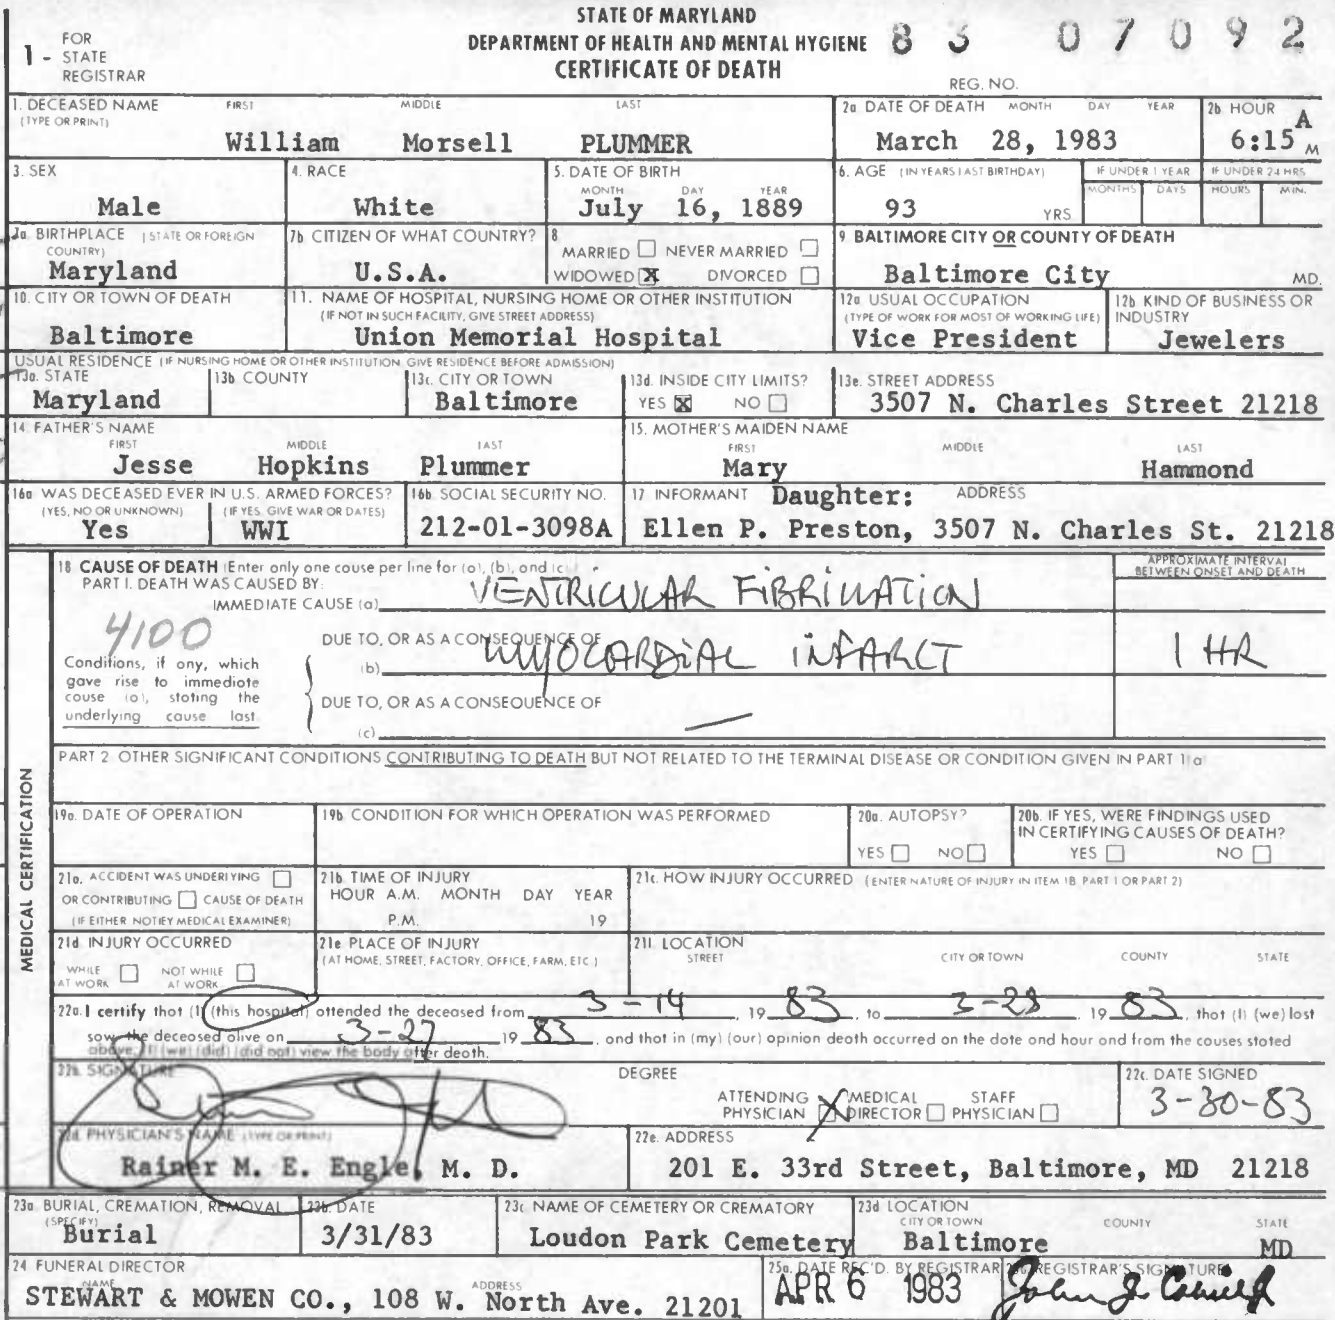 STATE OF MARYLAND
DEPARTMENT OF HEALTH AND MENTAL HYGIENE 83 07092
CERTIFICATE OF DEATH
1 - FOR STATE REGISTRAR
REG. NO.
1. DECEASED NAME (TYPE OR PRINT) FIRST MIDDLE LAST
William Morsell PLUMMER
2a. DATE OF DEATH MONTH DAY YEAR
March 28, 1983
2b. HOUR
6:15 A M
3. SEX
Male
4. RACE
White
5. DATE OF BIRTH MONTH DAY YEAR
July 16, 1889
6. AGE (IN YEARS LAST BIRTHDAY)
93 YRS
IF UNDER 1 YEAR MONTHS DAYS
IF UNDER 24 HRS HOURS MIN.
7a. BIRTHPLACE (STATE OR FOREIGN COUNTRY)
Maryland
7b CITIZEN OF WHAT COUNTRY?
U.S.A.
8. MARRIED ☐ NEVER MARRIED ☐
WIDOWED ☒ DIVORCED ☐
9 BALTIMORE CITY OR COUNTY OF DEATH
Baltimore City MD.
10. CITY OR TOWN OF DEATH
Baltimore
11. NAME OF HOSPITAL, NURSING HOME OR OTHER INSTITUTION
(IF NOT IN SUCH FACILITY, GIVE STREET ADDRESS)
Union Memorial Hospital
12a USUAL OCCUPATION
(TYPE OF WORK FOR MOST OF WORKING LIFE)
Vice President
12b KIND OF BUSINESS OR INDUSTRY
Jewelers
USUAL RESIDENCE (IF NURSING HOME OR OTHER INSTITUTION GIVE RESIDENCE BEFORE ADMISSION)
13a. STATE
Maryland
13b COUNTY
13c. CITY OR TOWN
Baltimore
13d. INSIDE CITY LIMITS?
YES ☒ NO ☐
13e. STREET ADDRESS
3507 N. Charles Street 21218
14 FATHER'S NAME FIRST MIDDLE LAST
Jesse Hopkins Plummer
15. MOTHER'S MAIDEN NAME FIRST MIDDLE LAST
Mary Hammond
16a WAS DECEASED EVER IN U.S. ARMED FORCES?
(YES, NO OR UNKNOWN) (IF YES, GIVE WAR OR DATES)
Yes WWI
16b. SOCIAL SECURITY NO.
212-01-3098A
17 INFORMANT Daughter: ADDRESS
Ellen P. Preston, 3507 N. Charles St. 21218
MEDICAL CERTIFICATION
18 CAUSE OF DEATH (Enter only one cause per line for (a), (b), and (c)
PART I. DEATH WAS CAUSED BY:
APPROXIMATE INTERVAL BETWEEN ONSET AND DEATH
IMMEDIATE CAUSE (a) VENTRICULAR FIBRILLATION
4100
Conditions, if any, which gave rise to immediate cause (a), stating the underlying cause last.
DUE TO, OR AS A CONSEQUENCE OF
(b) MYOCARDIAL INFARCT 1 HR
DUE TO, OR AS A CONSEQUENCE OF
(c) —
PART 2 OTHER SIGNIFICANT CONDITIONS CONTRIBUTING TO DEATH BUT NOT RELATED TO THE TERMINAL DISEASE OR CONDITION GIVEN IN PART 1(a
19a. DATE OF OPERATION
19b CONDITION FOR WHICH OPERATION WAS PERFORMED
20a. AUTOPSY?
YES ☐ NO ☐
20b. IF YES, WERE FINDINGS USED IN CERTIFYING CAUSES OF DEATH?
YES ☐ NO ☐
21a. ACCIDENT WAS UNDERLYING ☐
OR CONTRIBUTING ☐ CAUSE OF DEATH
(IF EITHER NOTIFY MEDICAL EXAMINER)
21b TIME OF INJURY
HOUR A.M. MONTH DAY YEAR
P.M. 19
21c. HOW INJURY OCCURRED (ENTER NATURE OF INJURY IN ITEM 18, PART 1 OR PART 2)
21d INJURY OCCURRED
WHILE AT WORK ☐ NOT WHILE AT WORK ☐
21e PLACE OF INJURY
(AT HOME, STREET, FACTORY, OFFICE, FARM, ETC.)
21f. LOCATION
STREET CITY OR TOWN COUNTY STATE
22a. I certify that (I) (this hospital) attended the deceased from 3-14, 19 83, to 3-28, 19 83, that (I) (we) last
saw the deceased alive on 3-27 19 83, and that in (my) (our) opinion death occurred on the date and hour and from the causes stated
above, (I) (we) (did) (did not) view the body after death.
22b. SIGNATURE
DEGREE
ATTENDING PHYSICIAN ☒ MEDICAL DIRECTOR ☐ STAFF PHYSICIAN ☐
22c. DATE SIGNED
3-30-83
22d. PHYSICIAN'S NAME (TYPE OR PRINT)
Rainer M. E. Engle, M. D.
22e. ADDRESS
201 E. 33rd Street, Baltimore, MD 21218
23a BURIAL, CREMATION, REMOVAL (SPECIFY)
Burial
23b. DATE
3/31/83
23c NAME OF CEMETERY OR CREMATORY
Loudon Park Cemetery
23d LOCATION
CITY OR TOWN COUNTY STATE
Baltimore MD
24 FUNERAL DIRECTOR
NAME ADDRESS
STEWART & MOWEN CO., 108 W. North Ave. 21201
25a. DATE REC'D. BY REGISTRAR
APR 6 1983
REGISTRAR'S SIGNATURE
John J.